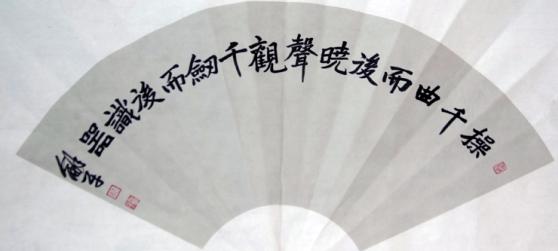 操千曲而後曉聲觀千劒而後識器